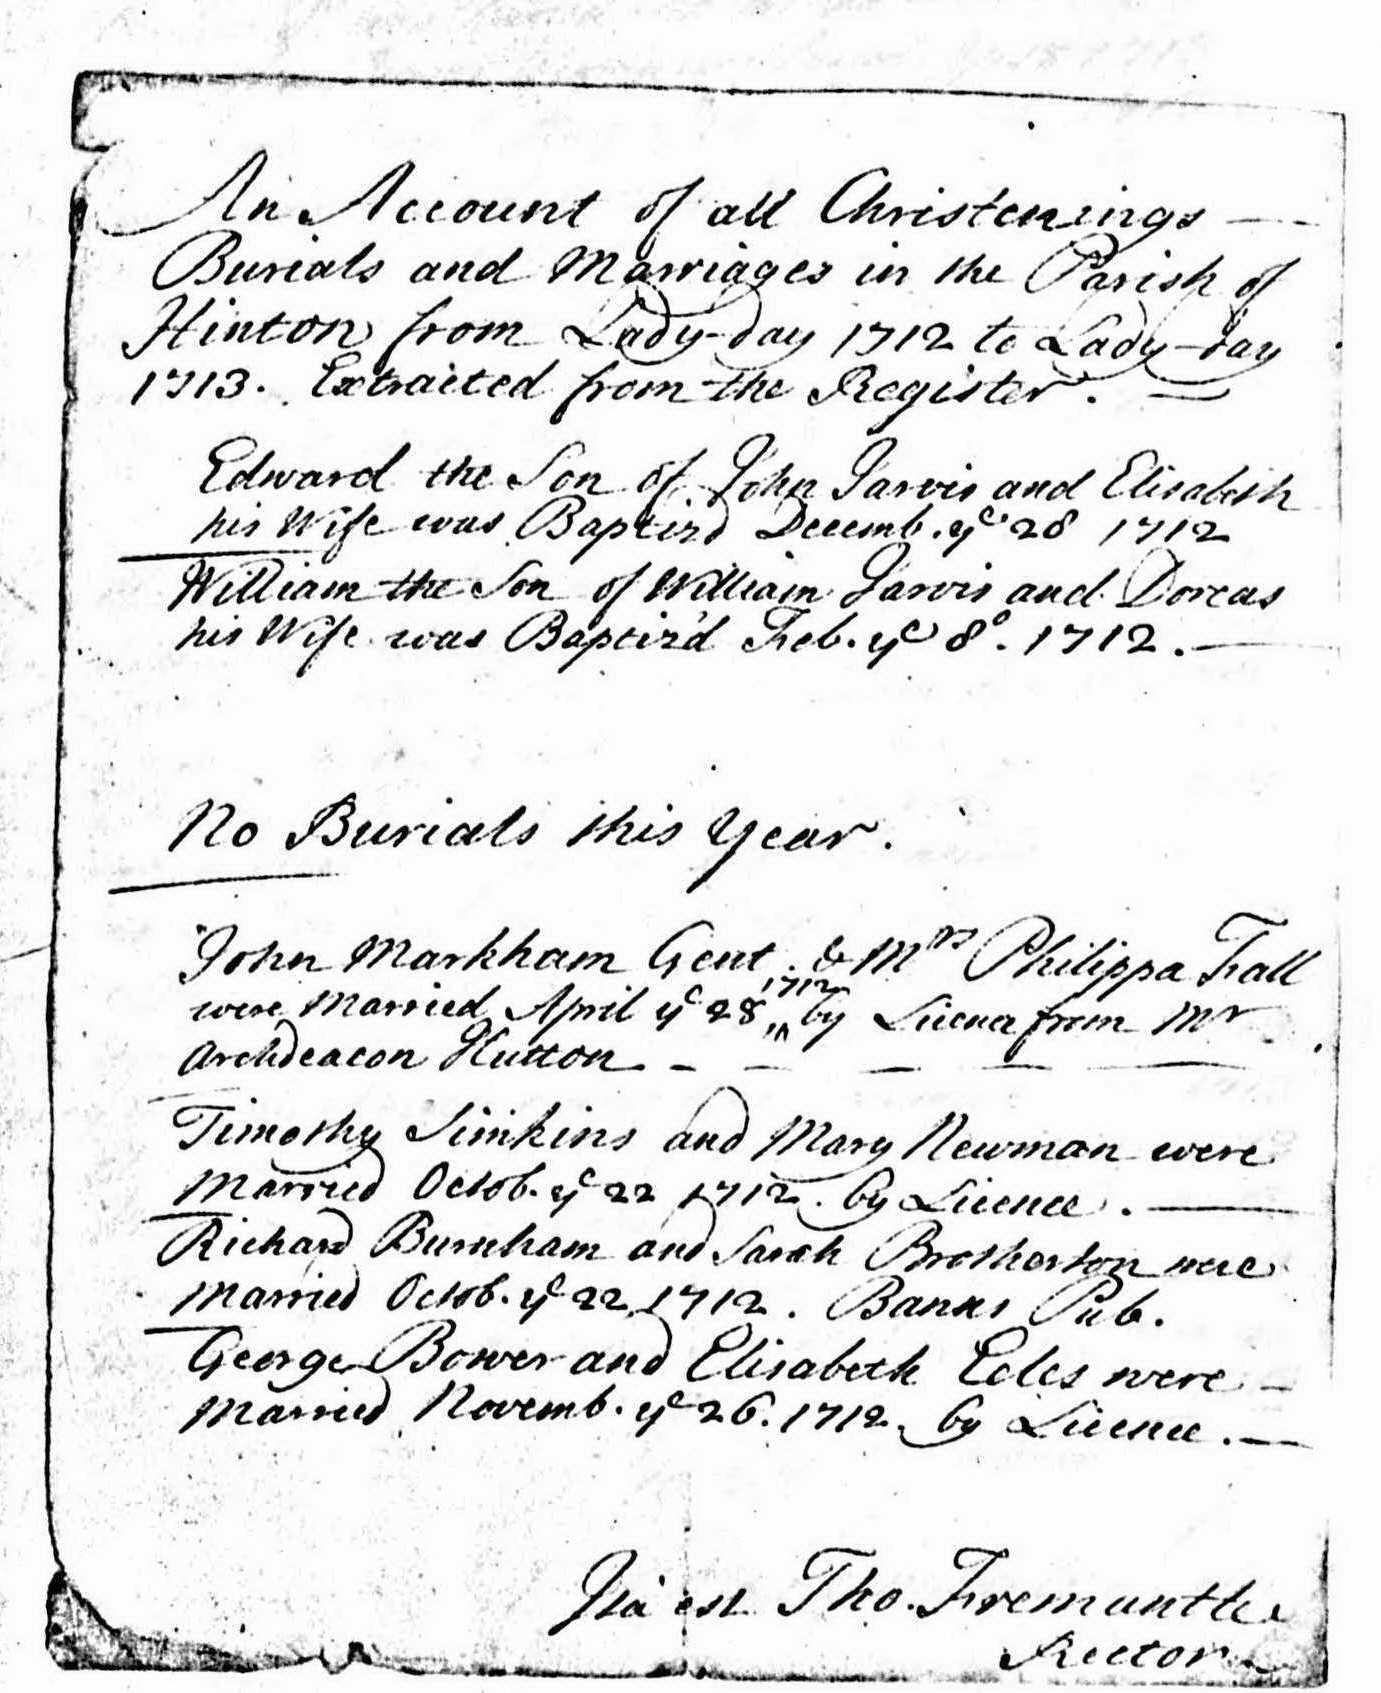 An Account of all Christenings —
Burials and Marriages in the Parish of
Hinton from Lady-day 1712 to Lady-day
1713. Extracted from the Register. —
Edward the Son of John Jarvis and Elisabeth
his Wife was Baptiz'd Decemb. yᵉ 28 1712
William the Son of William Jarvis and Dorcas
his Wife was Baptiz'd Feb. yᵉ 8°. 1712. —
No Burials this Year.
John Markham Gent. & Mʳˢ Philippa Fall
1712
were Married April yᵉ 28 by Licence from Mʳ
Archdeacon Hutton — — — — —
Timothy Simkins and Mary Newman were
Married Octob. yᵉ 22 1712. by Licence. —
Richard Burnham and Sarah Brotherton were
Married Octob. yᵉ 22 1712. Banns Pub.
George Bower and Elisabeth Eeles were —
Married Novemb. yᵉ 26. 1712. by Licence. —
Ita est Tho. Fremantle
Rector